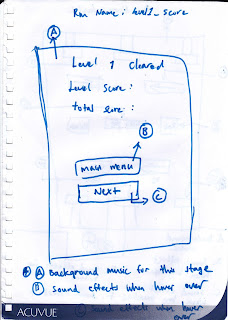 Rm Name : level1_score
A
Level 1 Cleared
Level Score :
total score :
B
main menu
Next
C
A Background music for this stage
B Sound effects when hover over
C Sound effects when hover
over
ACUVUE